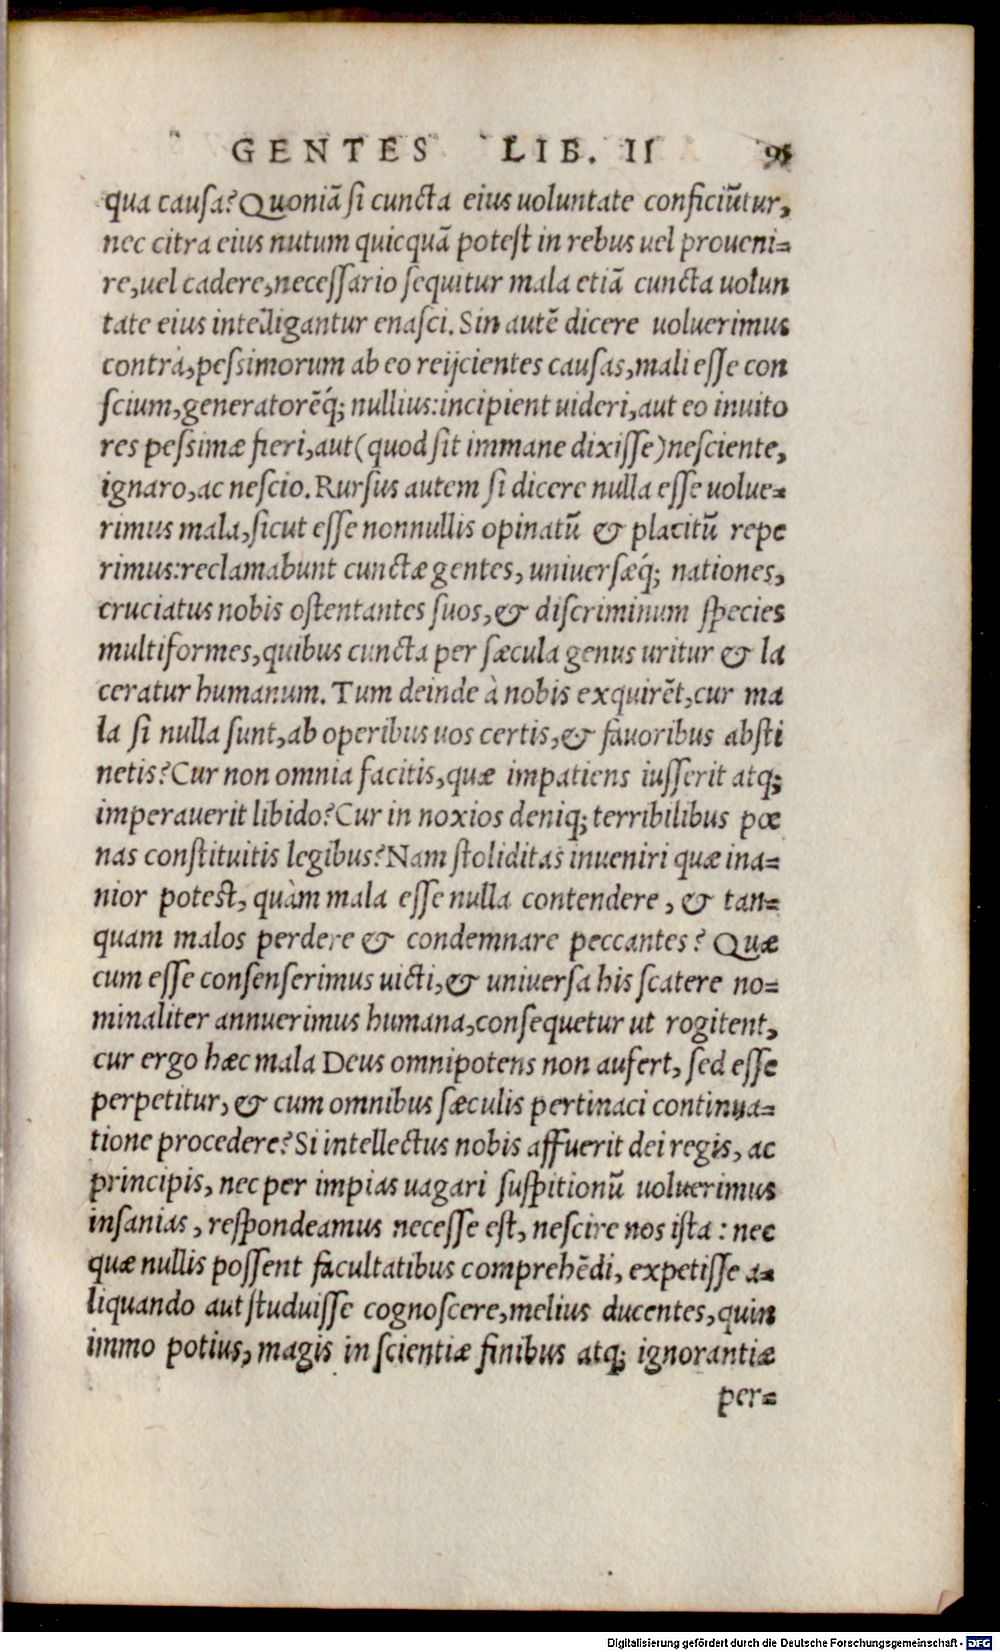 GENTES LIB. II 95
qua causa? Quoniã si cuncta eius uoluntate conficiũtur,
nec citra eius nutum quicquã potest in rebus uel proueni=
re, uel cadere, necessario sequitur mala etiã cuncta uolun
tate eius intelligantur enasci. Sin autẽ dicere uoluerimus
contrà, pessimorum ab eo reijcientes causas, mali esse con
scium, generatorẽq́; nullius: incipient uideri, aut eo inuito
res pessimæ fieri, aut (quod sit immane dixisse) nesciente,
ignaro, ac nescio. Rursus autem si dicere nulla esse uolue=
rimus mala, sicut esse nonnullis opinatũ & placitũ repe
rimus: reclamabunt cunctæ gentes, uniuersæq́; nationes,
cruciatus nobis ostentantes suos, & discriminum species
multiformes, quibus cuncta per sæcula genus uritur & la
ceratur humanum. Tum deinde à nobis exquirẽt, cur ma
la si nulla sunt, ab operibus uos certis, & fauoribus absti
netis? Cur non omnia facitis, quæ impatiens iusserit atq;
imperauerit libido? Cur in noxios deniq; terribilibus pœ
nas constituitis legibus? Nam stoliditas inueniri quæ ina=
nior potest, quàm mala esse nulla contendere, & tan=
quam malos perdere & condemnare peccantes? Quæ
cum esse consenserimus uicti, & uniuersa his scatere no=
minaliter annuerimus humana, consequetur ut rogitent,
cur ergo hæc mala Deus omnipotens non aufert, sed esse
perpetitur, & cum omnibus sæculis pertinaci continua=
tione procedere? Si intellectus nobis affuerit dei regis, ac
principis, nec per impias uagari suspitionũ uoluerimus
insanias, respondeamus necesse est, nescire nos ista: nec
quæ nullis possent facultatibus comprehẽdi, expetisse a=
liquando aut studuisse cognoscere, melius ducentes, quin
immo potius, magis in scientiæ finibus atq; ignorantiæ
per=
Digitalisierung gefördert durch die Deutsche Forschungsgemeinschaft - DFG